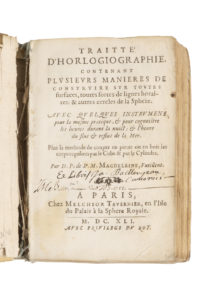 TRAITTÉ
D'HORLOGIOGRAPHIE.
CONTENANT
PLVSIEVRS MANIERES DE
CONSTRVIRE SVR TOVTES
surfaces, toutes sortes de lignes horaires,
& autres cercles de la Sphere.
AVEC QVELQVES INSTRVMENS,
pour la mesme pratique, & pour connoistre
les heures durant la nuict, & l'heure
du flus & reflus de la Mer.
Plus la methode de couper en pierre ou en bois les
corps reguliers par le Cube & par le Cylindre.
Par D. P. de S. M. MAGDELEINE, Fueillent.
Ex Libris
A PARIS,
Chez MELCHIOR TAVERNIER, en l'Isle
du Palais à la Sphere Royale.
M. DC. XLI.
AVEC PRIVILEGE DV ROY.